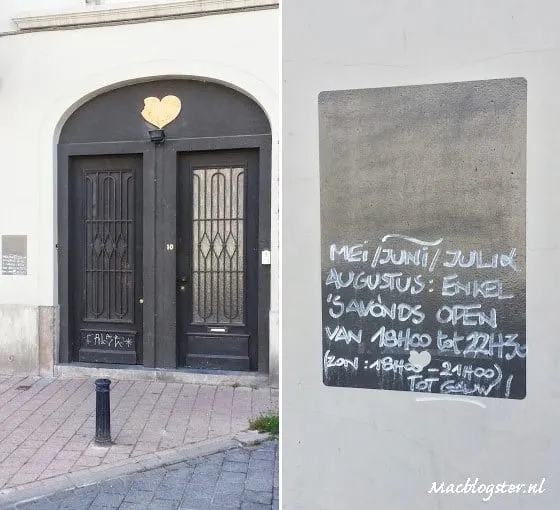 10
MEI / JUNI / JULI &
AUGUSTUS: ENKEL
'S AVONDS OPEN
VAN 18H00 tot 22H30
(ZON: 18H00 - 21H00)
TOT GAUW!
Macblogster.nl